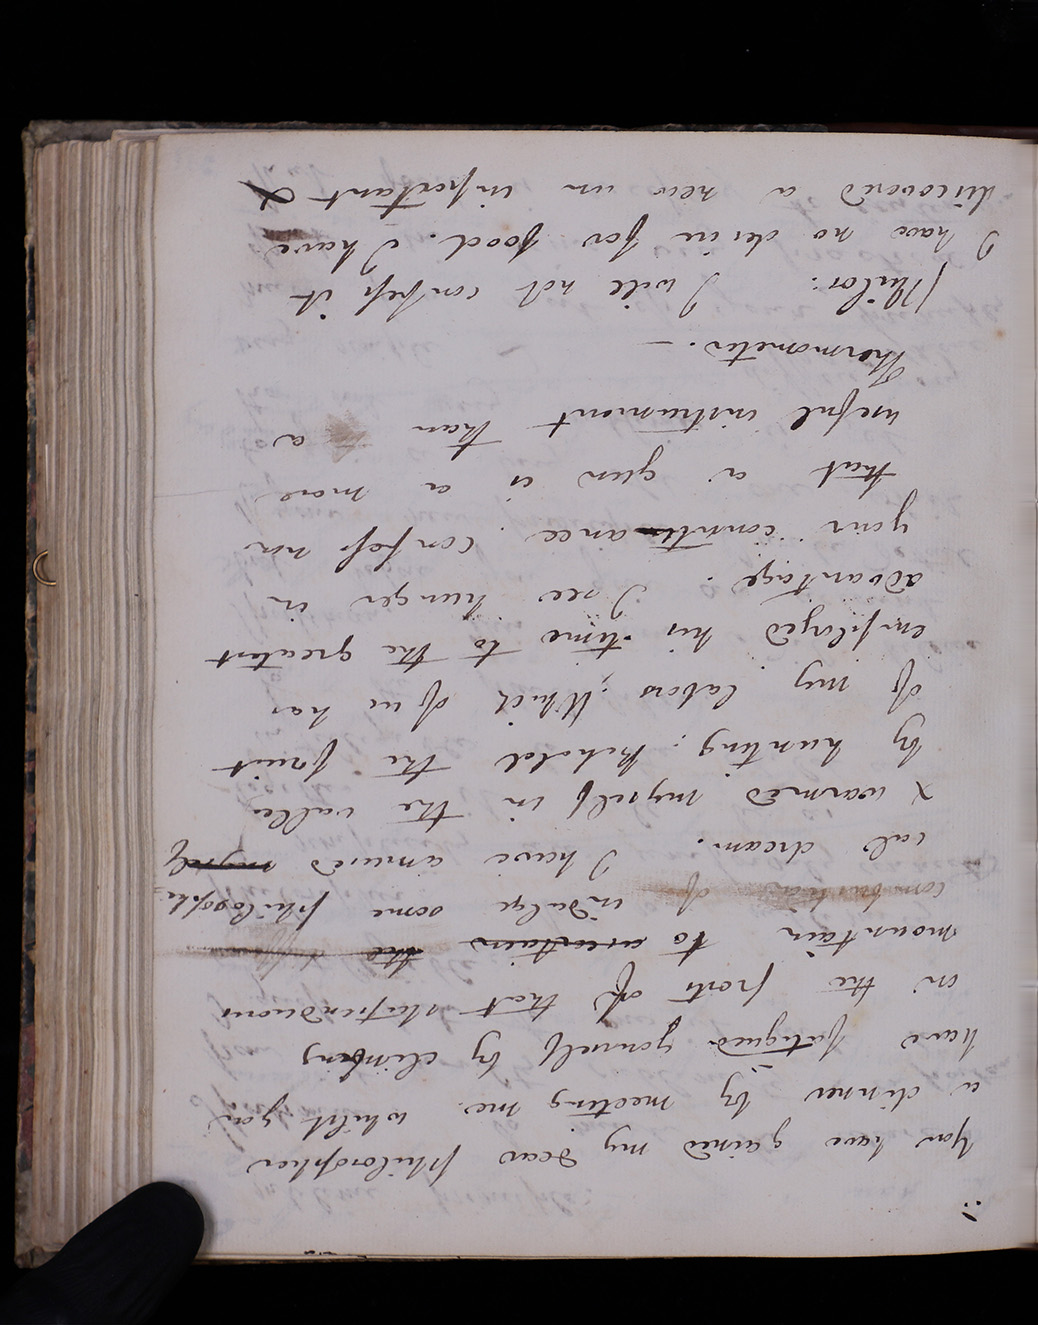 You have gained my dear Philosopher
a dinner by meeting me. whilst you
have fatigued yourself by climbing
on the frosts of that stupenduous
mountain to ascertain the
combustion of indulge some philosophi
cal dream. I have amused myself
& warmed myself in the valley
by hunting; Behold the fruit
of my labors; Which of us has
employed his time to the greatest
advantage. I see hunger in
your countenance. confess now
that a gun is a more
useful instrument than a
Thermometer. —
Philos: I will not confess it
I have no desire for food. I have
discovered a new un important &